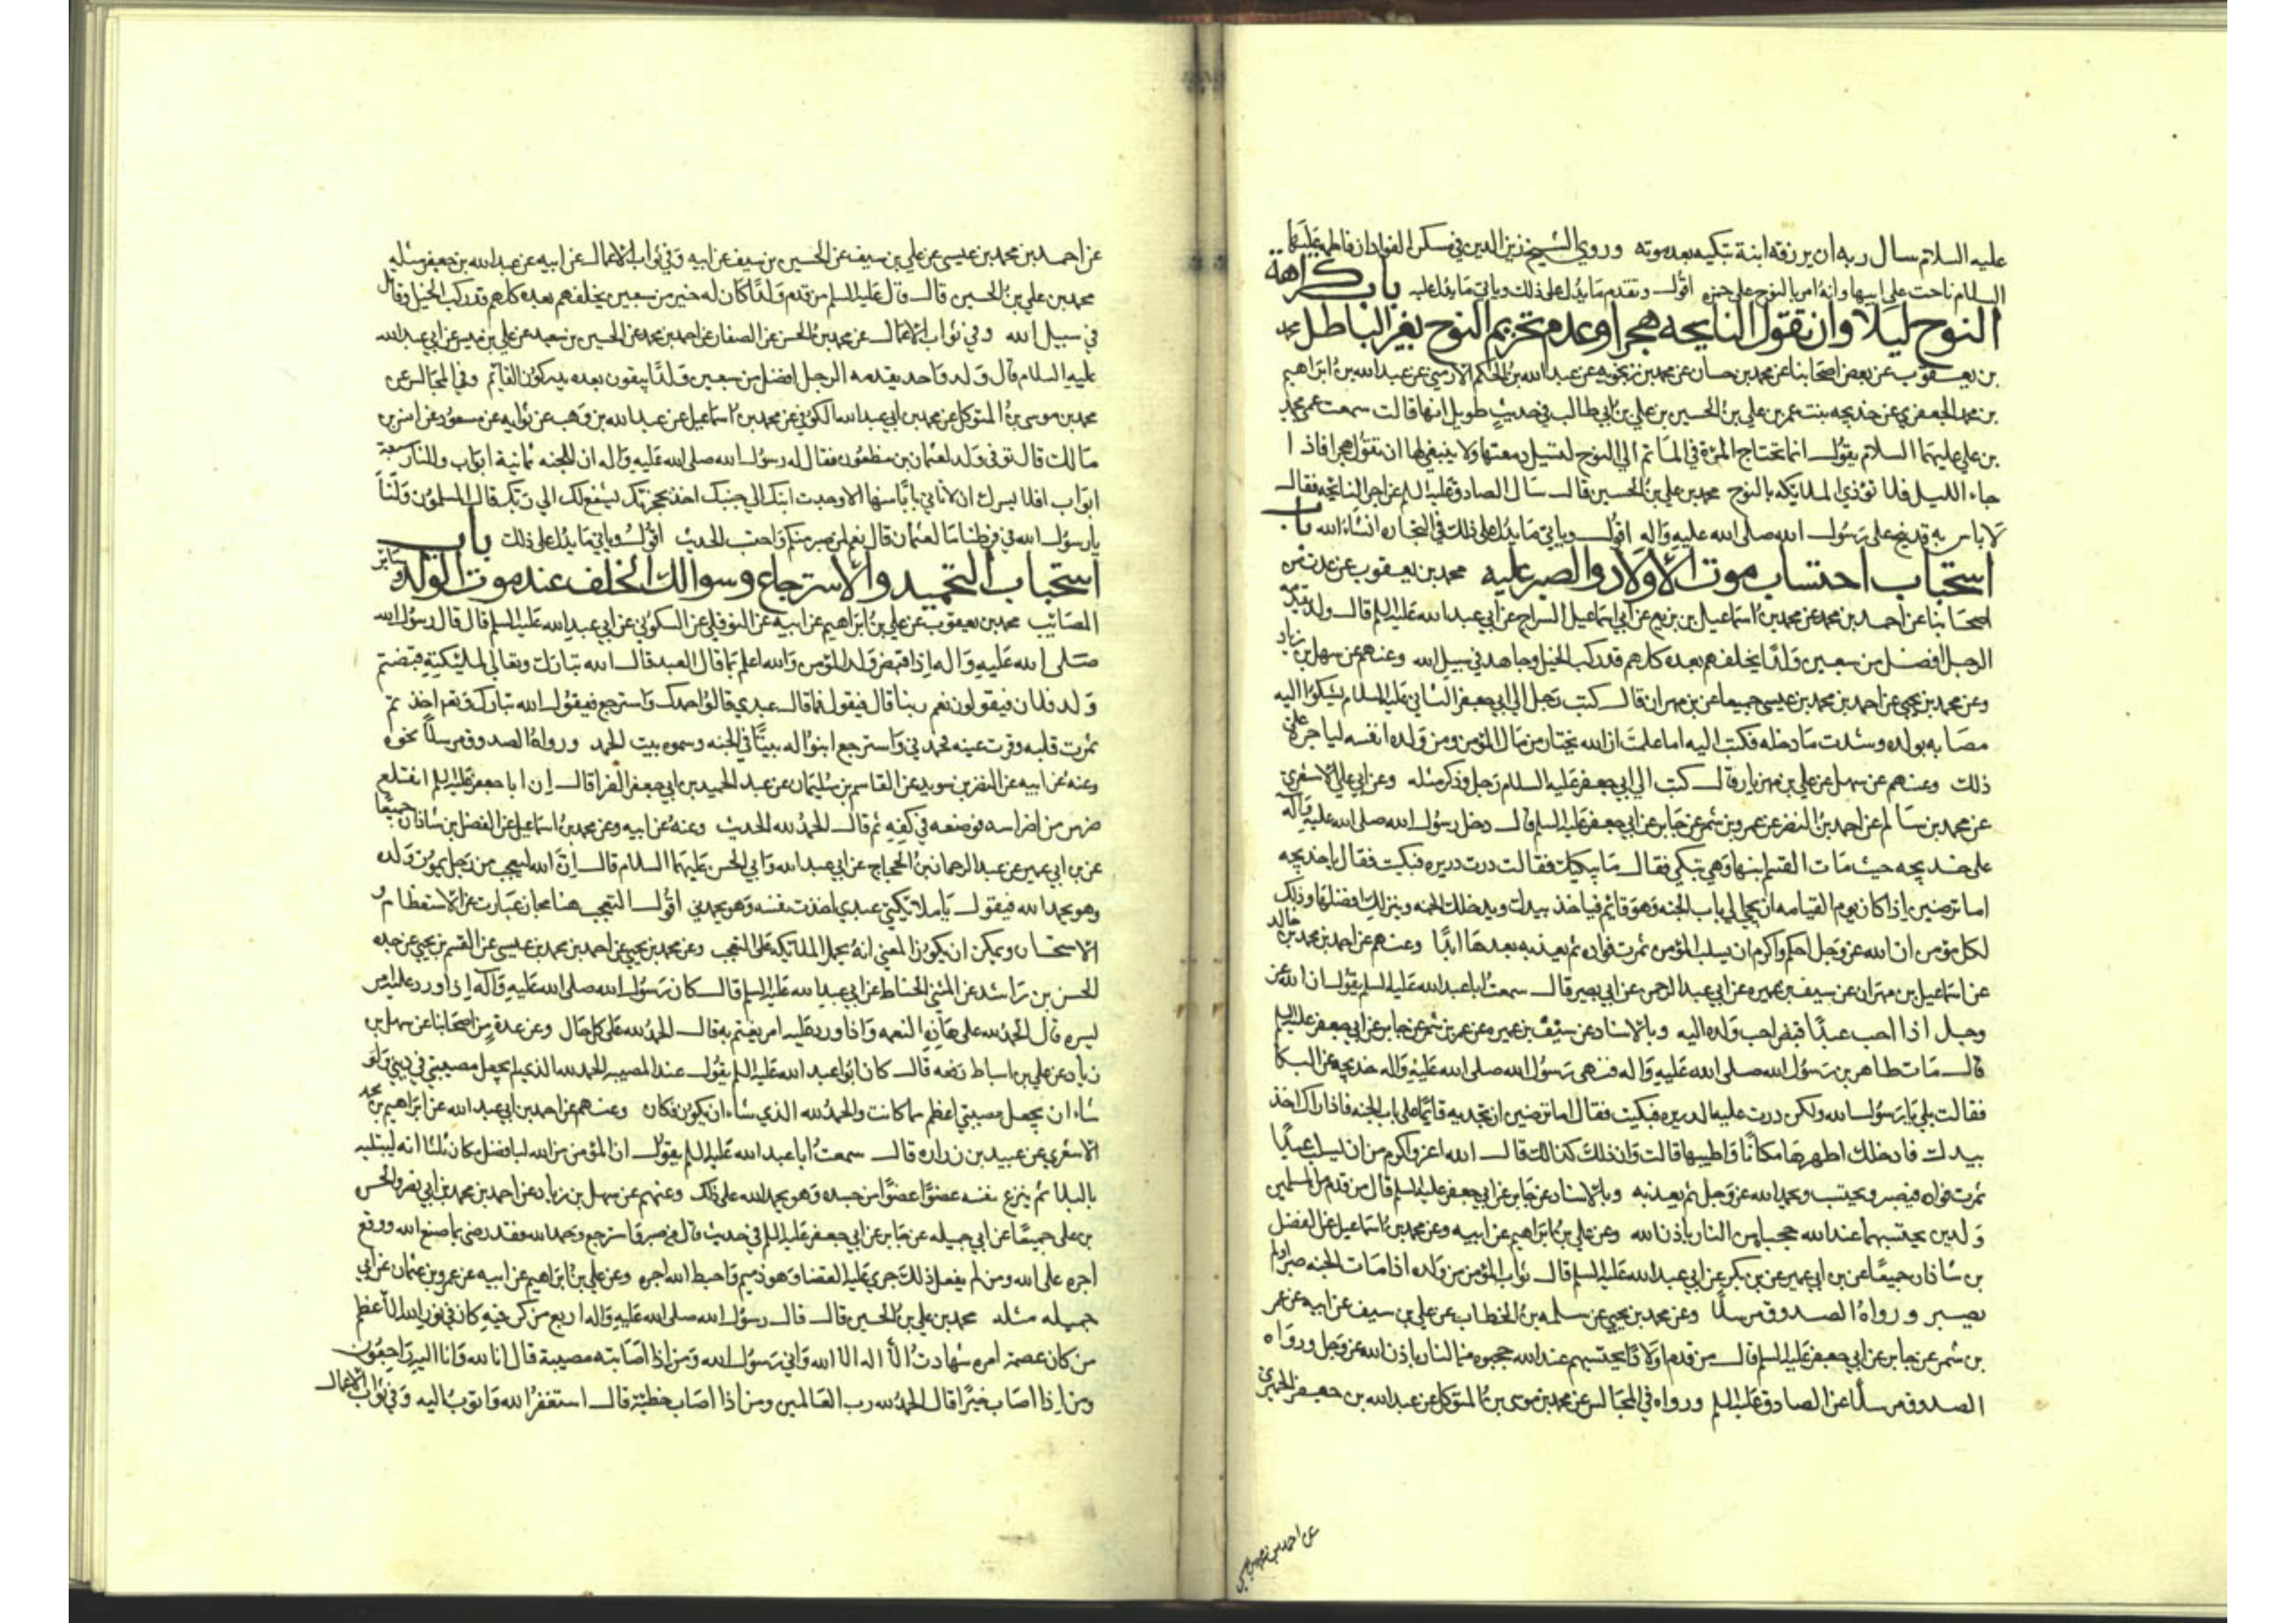 عليه السلام سال ربه ان يرزقه ابنة تبكيه بعد موته وروي الشيخ زين الدين في مسكن الفواد ان فاطمه عليها
السلام ناحت على ابيها وانه امر بالنوح على حمزه اقول وتقدم ما يدل على ذلك وياتي ما يدل عليه باب كراهة
النوح ليلا وان تقول النايحه هجرا وعدم تحريم النوح بغير الباطل محمد
بن يعقوب عن بعض اصحابنا عن محمد بن حسان عن محمد بن زنجويه عن عبد الله بن الحكم الارمني عن عبد الله بن ابراهيم
بن محمد الجعفري عن خديجه بنت عمر بن علي بن الحسين بن علي بن ابي طالب في حديث طويل انها قالت سمعت عمي محمد
بن علي عليهما السلام يقول انما تحتاج المرءة في الماتم الي النوح لتسيل دمعتها ولا ينبغي لها ان تقول هجرا فاذا
جاء الليل فلا توذي الملايكه بالنوح محمد بن علي بن الحسين قال سال الصادق عليه السلم عن اجر النايحه فقال
لا باس به قد نيح على رسول الله صلى الله عليه واله اقول وياتي ما يدل على ذلك في التجاره انشاءالله باب
استحباب احتساب موت الاولاد والصبر عليه محمد بن يعقوب عن عدت من
اصحابنا عن احمد بن محمد عن محمد بن اسماعيل بن بزيع عن ابي اسماعيل السراج عن ابي عبد الله عليه السلم قال ولد يقدمه
الرجل افضل من سبعين ولدا يخلفهم بعده كلهم قد ركب الخيل وجاهد في سبيل الله وعنهم عن سهل بن زياد
وعن محمد بن يحيى عن احمد بن محمد بن عيسى جميعا عن بن مهران قال كتب رجل الي ابي جعفر الثاني عليه السلام يشكوا اليه
مصابه بولده وشدت ما دخله فكتب اليه اما علمت ان الله يختار من مال المؤمن ومن ولده انفسه لياجره على
ذلك وعنهم عن سهل عن علي بن مهزيار قال كتب الي ابي جعفر عليه السلام رجل وذكر مثله وعن ابي علي الاشعري
عن محمد بن سالم عن احمد بن النضر عن عمرو بن شمر عن جابر عن ابي جعفر عليه السلم قال دخل رسول الله صلى الله عليه وآله
على خديجه حيث مات القسم ابنها وهي تبكي فقال ما يبكيك فقالت درت دريره فبكيت فقال يا خديجه
اما ترضين اذا كان يوم القيامه ان تجي الي باب الجنه وهو قائم فياخذ بيدك ويدخلك الجنه وينزلك افضلها وذلك
لكل مؤمن ان الله عز وجل احكم واكرم ان يسلب المؤمن ثمرت فواده ثم يعذبه بعدها ابدا وعنهم عن احمد بن محمد بن خالد
عن اسماعيل بن مهران عن سيف بن عميره عن ابي عبد الرحمن عن ابي بصير قال سمعت ابا عبد الله عليه السلم يقول ان الله عز
وجل اذا احب عبدا قبض احب ولده اليه وبالاسناد عن سيف بن عميره عن عمر بن شمر عن جابر عن ابي جعفر عليه السلم
قال مات طاهر بن رسول الله صلى الله عليه واله فنهى رسول الله صلى الله عليه واله خديجه عن البكا
فقالت بلي يا رسول الله ولكن درت عليه الدريره فبكيت فقال اما ترضين ان تجديه قائما على باب الجنه فاذا راك اخذ
بيدك فادخلك اطهرها مكانا واطيبها قالت وان ذلك كذالك قال الله اعز واكرم من ان يسلب عبدا
ثمرت فواده فيصبر ويحتسب ويحمد الله عز وجل ثم يعذبه وبالاسناد عن جابر عن ابي جعفر عليه السلم قال من قدم من المسلمين
ولدين يحتسبهما عند الله حجباه من النار باذن الله وعن علي بن ابراهيم عن ابيه وعن محمد بن اسماعيل عن الفضل
بن شاذان جميعا عن بن ابي عمير عن بن بكير عن ابي عبد الله عليه السلم قال ثواب المؤمن من ولده اذا مات الجنه صبر او لم
يصبر ورواه الصدوق مرسلا وعن محمد بن يحيى عن سلمه بن الخطاب عن علي بن سيف عن ابيه عن عمر
بن شمر عن جابر عن ابي جعفر عليه السلم قال من قدم اولادا يحتسبهم عند الله حجبوه من النار باذن الله عز وجل ورواه
الصدوق مرسلا عن الصادق عليه السلم ورواه في المجالس عن محمد بن موسى بن المتوكل عن عبد الله بن جعفر الحميري
عن احمد بن محمد بن عيسى
عن احمد بن محمد بن عيسى عن علي بن سيف عن الحسين بن سيف عن ابيه وفي ثواب الاعمال عن ابيه عن عبد الله بن جعفر مثله
محمد بن علي بن الحسين قال قال عليه السلم من قدم ولدا كان له خير من سبعين يخلفهم بعده كلهم قد ركب الخيل وقاتل
في سبيل الله وفي ثواب الاعمال عن محمد بن الحسن عن الصفار عن احمد بن محمد عن الحسين بن سعيد عن علي بن ميسر عن ابي عبد الله
عليه السلام قال ولد واحد يقدمه الرجل افضل من سبعين ولدا يبقون بعده يدركون القائم وفي المجالس عن
محمد بن موسى بن المتوكل عن محمد بن ابي عبد الله الكوفي عن محمد بن اسماعيل عن عبد الله بن وهب عن ثوابه عن مسعود عن انس بن
مالك قال توفى ولد لعثمان بن مظعون فقال له رسول الله صلى الله عليه واله ان للجنه ثمانية ابواب وللنار سبعة
ابواب افلا يسرك ان لا تاتي بابا منها الا وجدت ابنك الي جنبك اخذ بحجزتك يشفع لك الي ربك قال المسلمون ولنا
يا رسول الله في فرطنا ما لعثمان قال نعم لمن صبر منكم واحتسب الحديث اقول وياتي ما يدل على ذلك باب
استحباب التحميد والاسترجاع وسوال الخلف عند موت الولد وساير
المصائب محمد بن يعقوب عن علي بن ابراهيم عن ابيه عن النوفلي عن السكوني عن ابي عبد الله عليه السلم قال قال رسول الله
صلى الله عليه واله اذا قبض ولد المؤمن والله اعلم بما قال العبد قال الله تبارك وتعالى لمليكته قبضتم
ولد فلان فيقولون نعم ربنا قال فيقول فما قال عبدي قالوا حمدك واسترجع فيقول الله تبارك وتعر اخذتم
ثمرت قلبه وقرت عينه فحمدني واسترجع ابنوا له بيتا في الجنه وسموه بيت الحمد ورواه الصدوق مرسلا نحوه
وعنه عن ابيه عن النضر بن سويد عن القاسم بن سليمان عن عبد الحميد بن ابي جعفر الفرا قال ان ابا جعفر عليه السلم انقلع
ضرس من اضراسه فوضعه في كفه ثم قال الحمد لله الحديث وعنه عن ابيه وعن محمد بن اسماعيل عن الفضل بن شاذان جميعا
عن بن ابي عمير عن عبد الرحمان بن الحجاج عن ابي عبد الله وابي الحسن عليهما السلام قال ان الله ليعجب من رجل يموت ولده
وهو يحمد الله فيقول يا ملائكتي عبدي اخذت نفسه وهو يحمدني اقول التعجب هنا مجاز عبارت عن الاستعظام و
الاستحسان ويمكن ان يكون المعني انه يحمل الملائكه على التعجب وعن محمد بن يحيى عن احمد بن محمد بن عيسى عن القسم بن يحيى عن جده
الحسن بن راشد عن المثني الحناط عن ابي عبد الله عليه السلم قال كان رسول الله صلى الله عليه وآله اذا ورد عليه امر
يسره قال الحمد لله على هاذه النعمه واذا ورد عليه امر يغتم به قال الحمد لله على كل حال وعن عدة من اصحابنا عن سهل بن
زياد عن علي بن اسباط رفعه قال كان ابو عبد الله عليه السلم يقول عند المصيبه الحمد لله الذي لم يجعل مصيبتي في ديني ولو
شاء ان يجعل مصيبتي اعظم مما كانت والحمد لله الذي شاء ان يكون فكان وعنهم عن احمد بن ابي عبد الله عن ابراهيم بن محمد
الاشعري عن عبيد بن زراره قال سمعت ابا عبد الله عليه السلم يقول ان المؤمن من الله لبافضل مكان ثلثا انه ليبتليه
بالبلا ثم ينزع نفسه عضوا عضوا من جسده وهو يحمد الله على ذلك وعنهم عن سهل بن زياد عن احمد بن محمد بن ابي نصر والحسن
بن علي جميعا عن ابي جميله عن جابر عن ابي جعفر عليه السلم في حديث قال من صبر واسترجع وحمد الله فقد رضى بما صنع الله ووقع
اجره على الله ومن لم يفعل ذلك جرى عليه القضا وهو ذميم واحبط الله اجره وعن علي بن ابراهيم عن ابيه عن عمرو بن عثمان عن ابي
جميله مثله محمد بن علي بن الحسين قال قال رسول الله صلى الله عليه واله اربع من كن فيه كان في نور الله الاعظم
من كان عصمة امره شهادت ان لا اله الا الله واني رسول الله ومن اذا اصابته مصيبة قال انا لله وانا اليه راجعون
ومن اذا اصاب خيرا قال الحمد لله رب العالمين ومن اذا اصاب خطيئة قال استغفر الله واتوب اليه وفي ثواب الاعمال